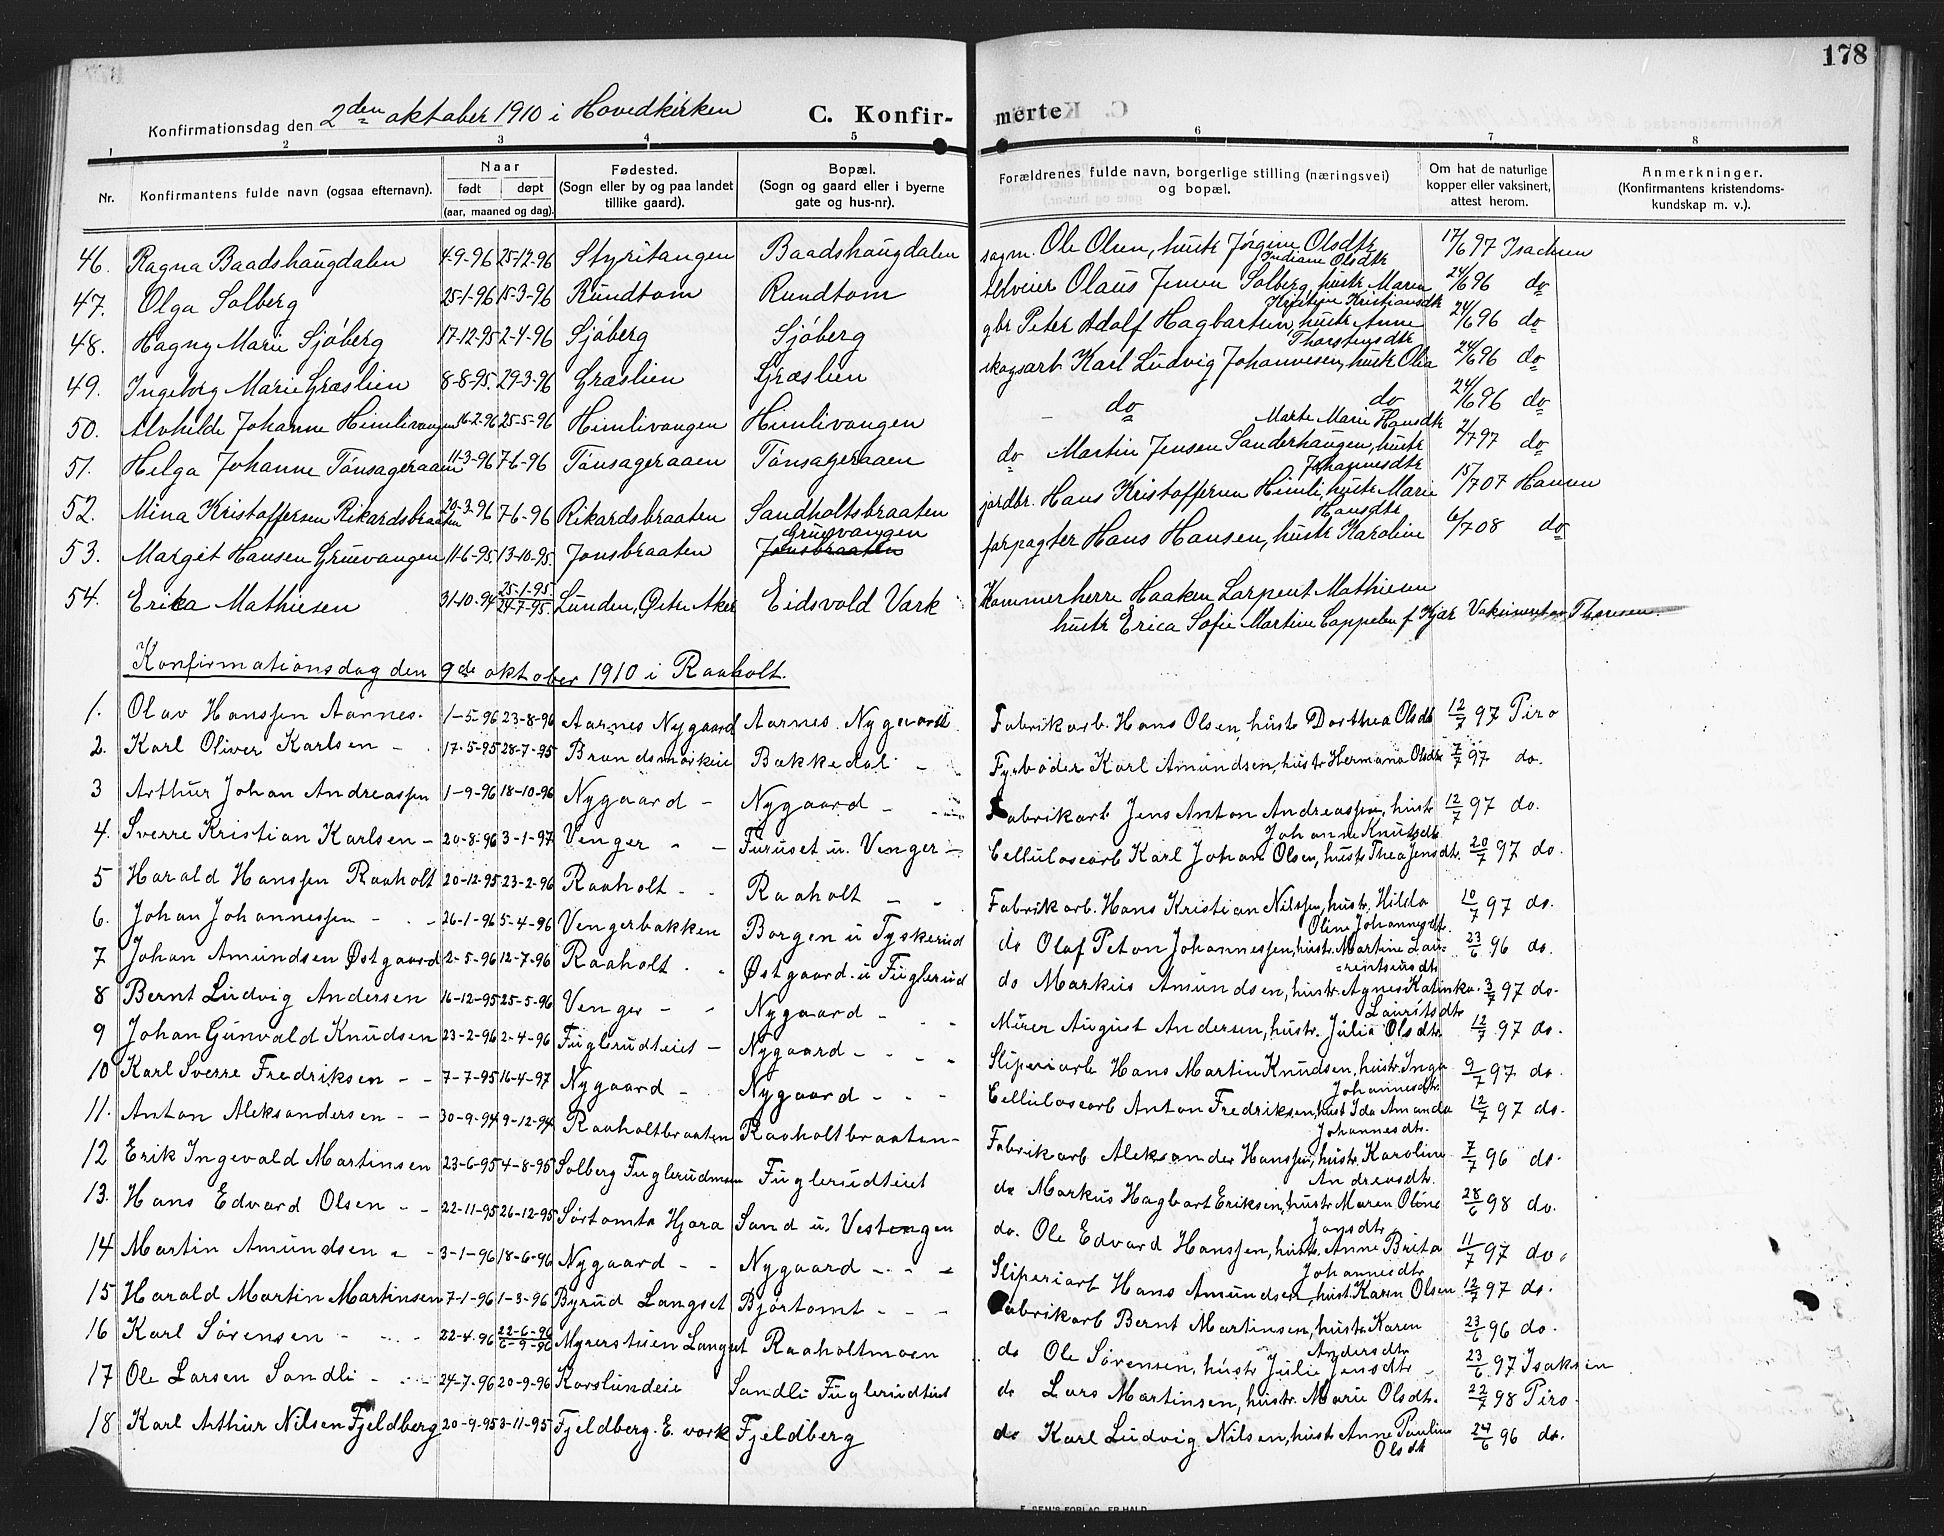 178
Konfirmationsdag den 2den oktober 1910 i Hovedkirken C. Konfir- merte
1 2 3 4 5 6 7 8
Nr. Konfirmantens fulde navn (ogsaa efternavn). Naar født døpt (aar, maaned og dag). Fødested. (Sogn eller by og paa landet tillike gaard). Bopæl. (Sogn og gaard eller i byerne gate og hus-nr). Forældrenes fulde navn, borgerlige stilling (næringsvei) og bopæl. Om hat de naturlige kopper eller vaksinert, attest herom. Anmerkninger. (Konfirmantens kristendoms- kundskap m. v.).
46. Ragna Baadshaugdalen 4-9-96 25-12-96 Styritangen Baadshaugdalen sagm. Ole Olsen, hustr Jørgine Olsdtr 17/6 97 Isachsen
47. Olga Solberg 25-1-96 15-3-96 Rundtom Rundtom Olaus Jensen Solberg, hustr Maren Indiane Olsdtr 24/6 96 do
48. Hagny Marie Sjøberg 17-12-95 2-4-96 Sjøberg Sjøberg gbr Peter Adolf Hagbartsen, hustr Anne Kristine Kristiansdtr 24/6 96 do
49. Ingeborg Marie Græslien 8-8-95. 29-3-96 Græslien Græslien skogsarb Karl Ludvig Johannesen, hustr Olia Thorstensdtr 24/6 96 do
50. Alvhilde Johanne Himlivangen 16-2-96 25-5-96 Himlivangen Himlivangen do do 24/6 96 do
51. Helga Johanne Tønsageraaen 11-3-96 7-6-96 Tønsageraaen Tønsageraaen do Martin Jensen Sanderhaugen, hustr Marte Marie Hansdtr 2/7 97 do
52. Mina Kristoffersen Rikardsbraaten 20-3-96 7-6-96 Rikardsbraaten Sandholtsbraaten jordbr. Hans Kristoffersen Himli, hustr Marie Johannesdtr 15/7 07 Hansen
53. Margit Hansen Gruevangen 11-6-95. 13-10-95. Jonsbraaten Jonsbraaten Gruevangen forpagter Hans Hansen, hustr Karoline Hansdtr 6/7 08 do
54. Erika Mathiesen 31-10-94 25-1-95 24-7-95. Lunden, Østr Aker Eidsvold Værk Kammerherre Haaken Larpent Mathiesen
hustr Erica Sofie Martine Cappelen f Kjær Vaksinert av Thoresen.
Konfirmationsdag den 9de oktober 1910 i Raaholt.
1. Olav Hanssen Aarnes. 1-5-96 23-8-96 Aarnes Nygaard Aarnes Nygaard Fabrikarb. Hans Olsen, hustr Dorthea Olsdtr 12/7 97 Piro
2. Karl Oliver Karlsen 17-5-95 28-7-95 Brandsmarkeie Bakkedal Fyrbøder Karl Amundsen, hustr Hermana Olsdtr 7/7 97 do.
3 Arthur Johan Andreassen 1-9-96 18-10-96 Nygaard Nygaard Fabrikarb Jens Anton Andreassen, hustr Johanne Knutsdtr 12/7 97 do.
4. Sverre Kristian Karlsen 20-8-96 3-1-97 Venger Furuset u. Venger Cellulosearb Karl Johan Olsen, hustr Thea Jensdtr. 20/7 97 do.
5 Harald Hanssen Raaholt 20-12-95 23-2-96 Raaholt Raaholt Fabrikarb. Hans Kristian Nilssen, hustr. Hilda Oline Johannesdtr. 10/7 97 do.
6. Johan Johannessen 26-1-96 5-4-96 Vengerbakken Borgen u Tyskerud do Olaf Peton Johannessen, hustr. Martine Laurentsusdtr 23/6 96 do.
7 Johan Amundsen Østgaard 2-5-96 12-7-96 Raaholt Østgaard u Fuglerud do Markus Amundsen, hustr. Agnes Katinka Lauritsdtr 3/7 97 do.
8 Bernt Ludvig Andersen 16-12-95 25-5-96 Venger Nygaard Murer August Andersen, hustr. Julia Olsdtr. 12/7 97 do.
9 Johan Gunvald Knudsen 23-2-96 2-4-96 Fuglerudteiet Nygaard Sliperiarb Hans Martin Knudsen, hustr. Inga Johannesdtr. 9/7 97 do.
10 Karl Sverre Fredriksen 7-7-95 16-4-97 Nygaard Nygaard Cellulosearb Anton Fredriksen, hust Ida Amanda Johannesdtr. 12/7 97 do.
11. Anton Aleksandersen 30-9-94 9-12-94 Raaholtbraaten Raaholtbraaten Fabrikarb Aleksander Hanssen, hustr. Karoline Andreasdtr. 7/7 96 do.
12 Erik Ingevald Martinsen 23-6-95 4-8-95 Solberg Fuglerudmoen Fuglerudteiet do Markus Hagbart Eriksen, hustr Maren Oline Jonsdtr 28/6 98 do.
13. Hans Edvard Olsen 22-11-95 26-12-95 Sørtomta Hjera Sand u. Vestengen do. Ole Edvard Hanssen, hustr. Anne Brita Johannesdtr 11/7 97 do.
14 Martin Amundsen 3-1-96 18-6-96 Nygaard Nygaard Sliperiarb Hans Amundsen, hust. Karen Olsen 12/7 97 do.
15 Harald Martin Martinsen 7-1-96 1-3-96 Byrud Langset Bjørtomt Fabrikarb Bernt Martinsen, hustr. Karen Andersdtr 23/6 96 do.
16 Karl Sørensen 22-4-96 22-6-96 6-9-96 Myrerstuen Langset Raaholtmoen do Ole Sørensen, hustr Julie Jensdtr 23/6 97 Isaksen
17 Ole Larsen Sandli 24-7-96 20-9-96 Korslundeie Sandli Fuglerudteiet do Lars Martinsen, hustr. Marie Olsdtr. 22/7 98 Piro
18 Karl Arthur Nilsen Fjeldberg 20-9-95 3-11-95 Fjeldberg. E. værk Fjeldberg do Karl Ludvig Nilsen, hustr Anne Pauline Olsdtr 24/6 96 do.